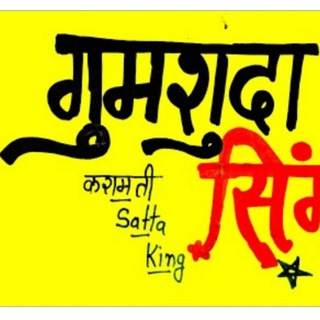 गुमशुदा
सिं
करामती
Satta
King